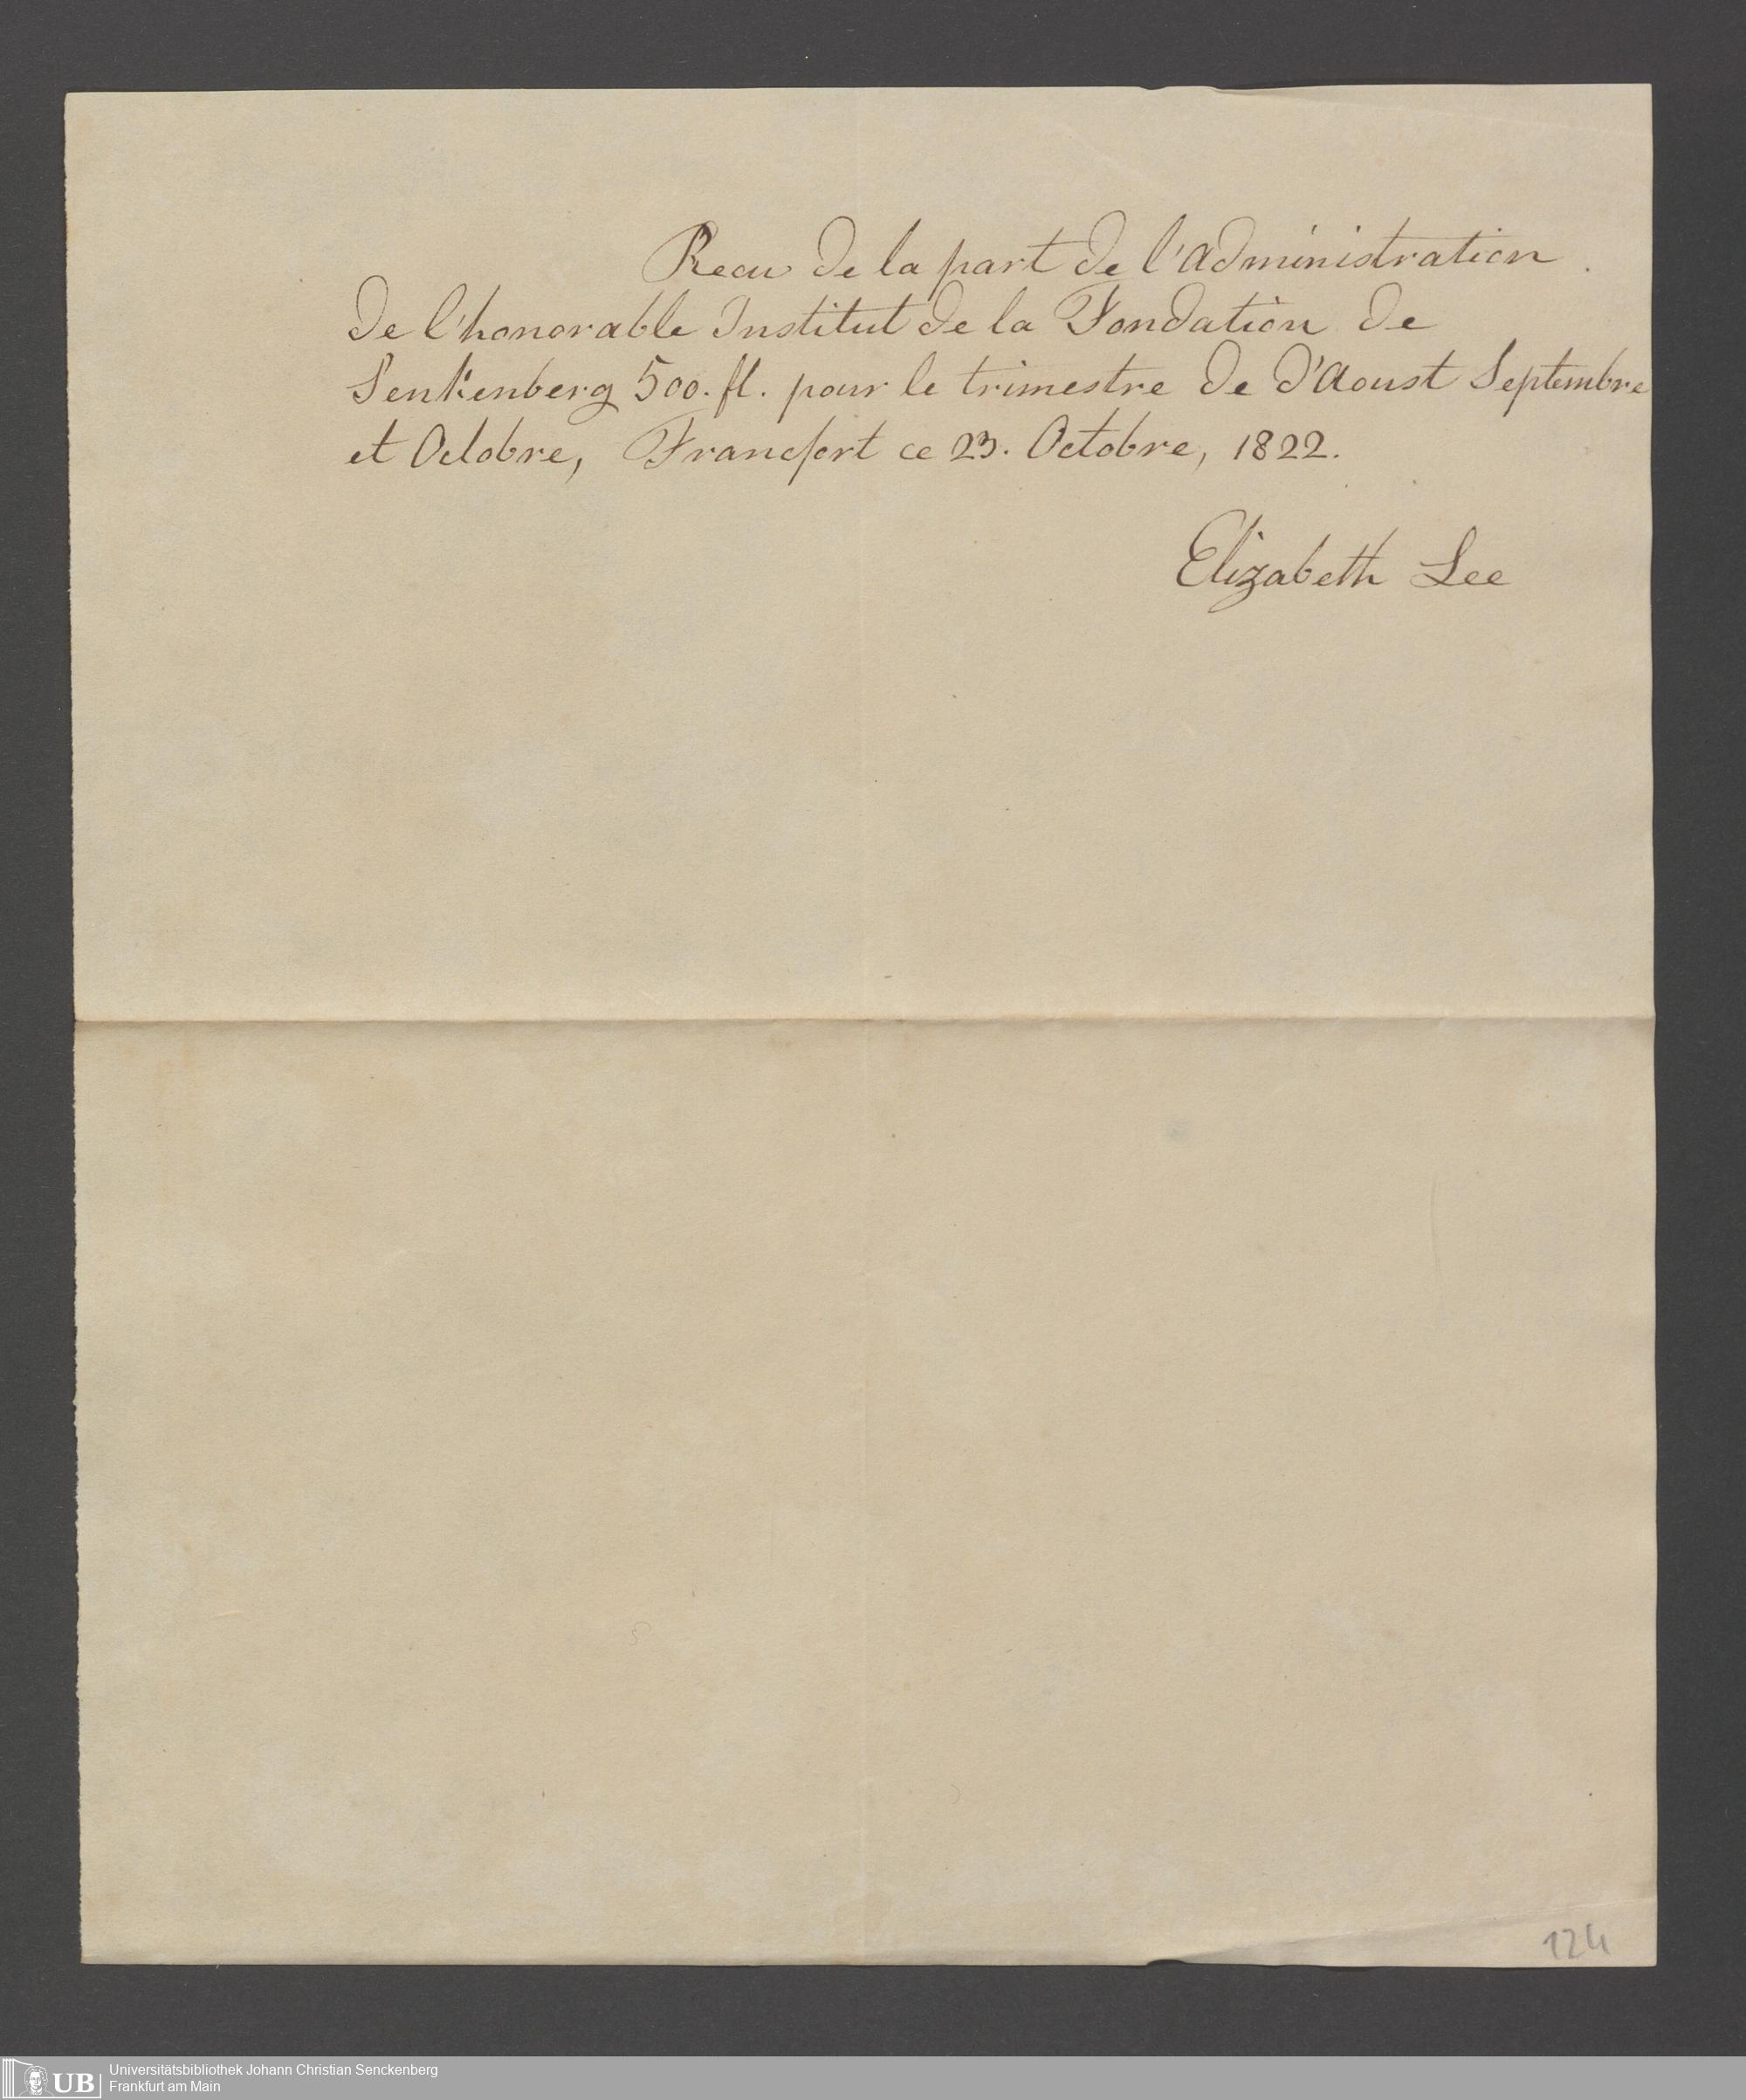 Recu de la part de l'administration
de l'honorable Institut de la Fondation de
Senkenberg 500. fl. pour le trimestre de d'Aoust Septembre
et Octobre, Francfort ce 23. Octobre, 1822.
Elizabeth Lee
124
UB Universitätsbibliothek Johann Christian Senckenberg
Frankfurt am Main